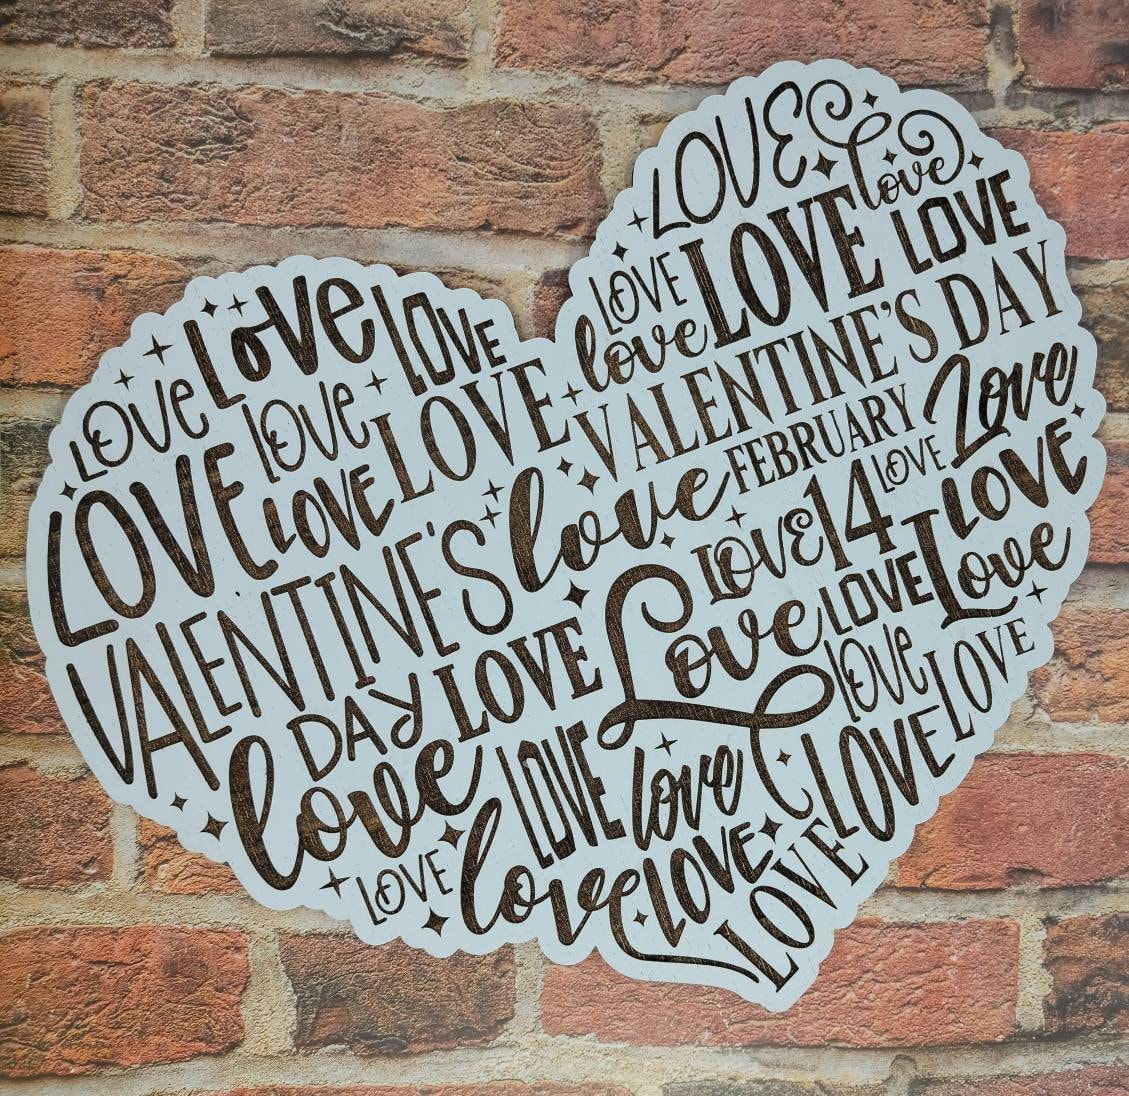 LOVE
love
LOVE
LOVE
LOVE
love
VALENTINE'S DAY
FEBRUARY
14
LOVE
Love
LOVE
LOVE
Love
LOVE
LOVE
LOVE
LOVE
LOVE
LOVE
LOVE
LOVE
LOVE
LOVE
LOVE
love
VALENTINE'S
DAY
LOVE
Love
love
LOVE
love
LOVE
love
LOVE
LOVE